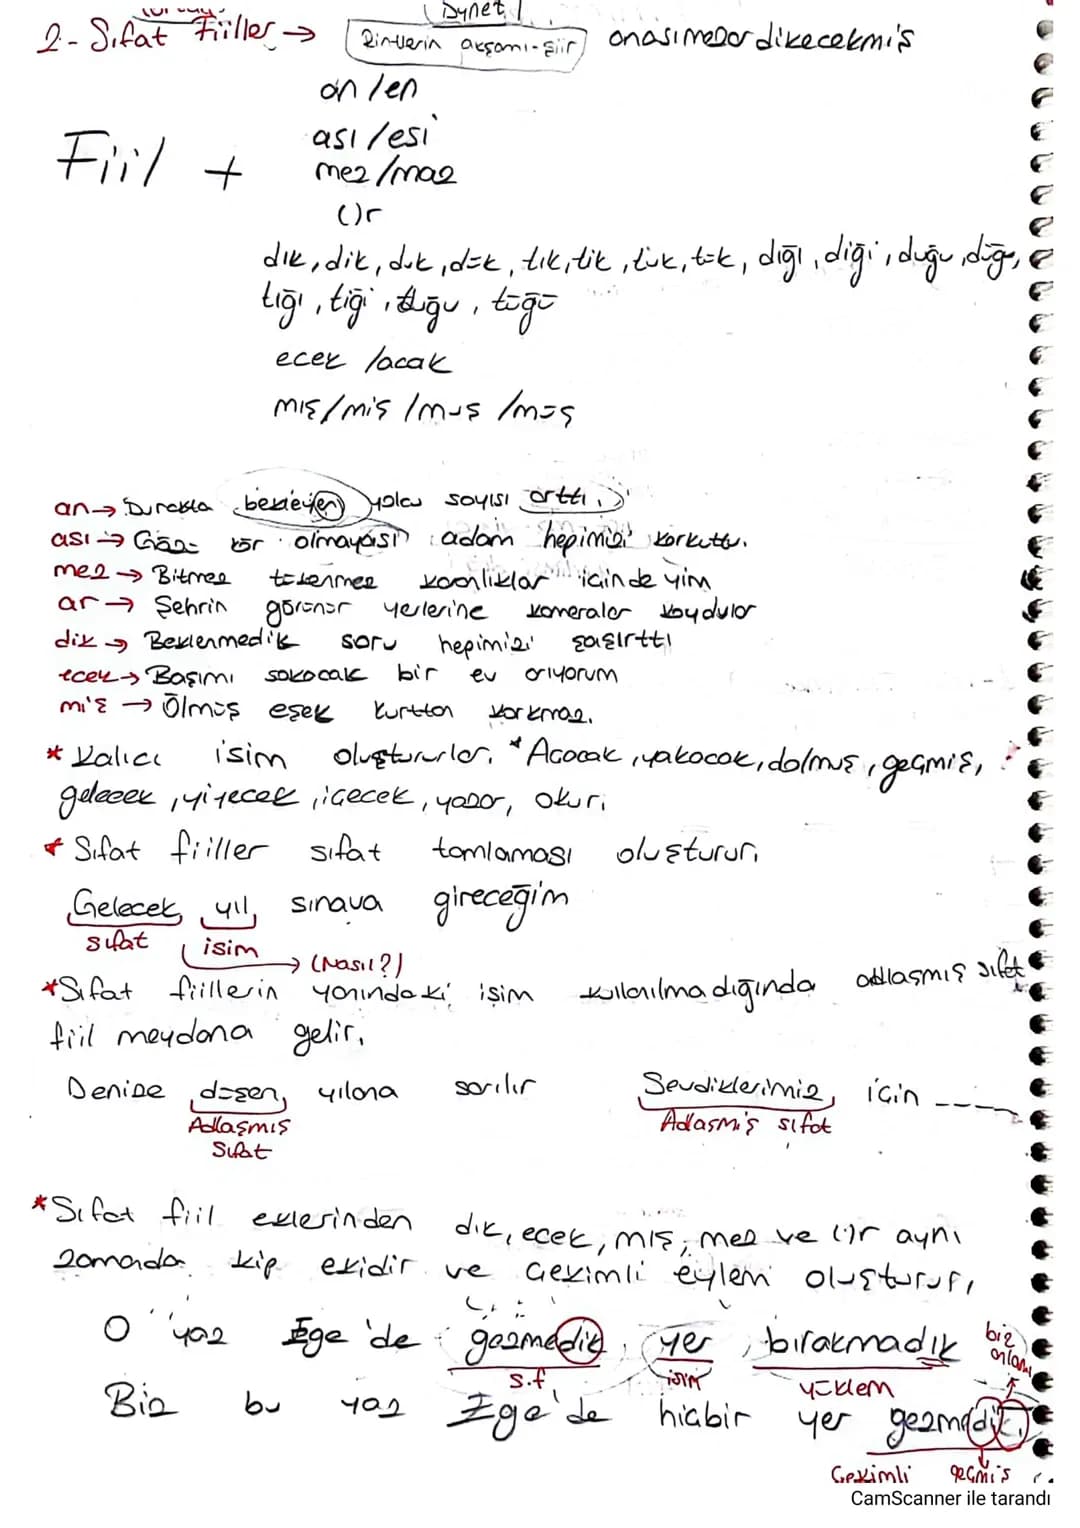 2- Sıfat Fiiller → Rintlerin akşamı-şiir anasımezardikecekmiş
an / en
ası / esi
Fiil + mez / maz
( )r
dık, dik, duk, dük, tık, tik, tuk, tük, dığı, diği, duğu, düğü,
tığı, tiği, tuğu, tüğü
ecek / acak
mış / miş / muş / müş
an → Durakta bekleyen yolcu sayısı arttı.
ası → Gözü kör olmayası adam hepimizi korkuttu.
mez → Bitmez tükenmez karanlıklar içindeyim
ar → Şehrin görünür yerlerine kameralar koydular
dik → Beklenmedik soru hepimizi şaşırttı
ecek → Başımı sokacak bir ev arıyorum
miş → Ölmüş eşek kurttan korkmaz.
* Kalıcı isim oluştururlar. * Açacak, yakacak, dolmuş, geçmiş,
gelecek, yiyecek, içecek, yazar, okur.
* Sıfat fiiller sıfat tamlaması oluşturur.
Gelecek yıl sınava gireceğim
sıfat isim → (Nasıl?)
* Sıfat fiillerin yanındaki isim kullanılmadığında adlaşmış sıfat
fiil meydana gelir.
Denize düşen yılana sarılır Sevdiklerimiz için ----
Adlaşmış Adlaşmış sıfat
Sıfat
* Sıfat fiil eklerinden dık, ecek, mış, mez ve ( )r aynı
zamanda kip ekidir ve Çekimli eylem oluşturur.
O yaz Ege'de gezmedik yer bırakmadık biz anlamı
s.f isim yüklem
Biz bu yaz Ege'de hiçbir yer gezmedik.
Çekimli geçmiş
CamScanner ile tarandı